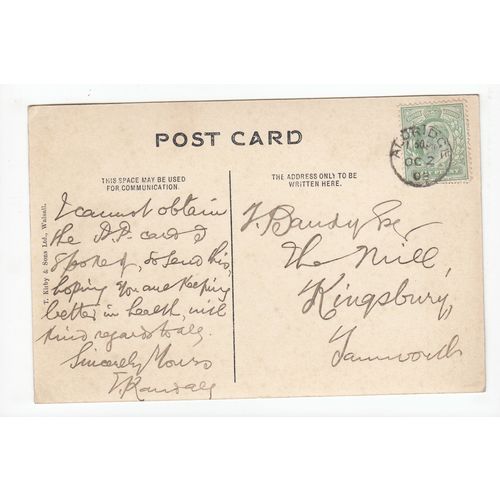 POST CARD
THIS SPACE MAY BE USED
FOR COMMUNICATION.
THE ADDRESS ONLY TO BE
WRITTEN HERE.
T. Kirby & Sons Ltd., Walsall.
I cannot obtain
the card I
spoke of, so send this,
hoping you are keeping
better in health, with
kind regards to all.
Sincerely Yours
Bandy Esq
The Mill,
Kingsbury,
Tamworth
ALDRIDGE
OC 2